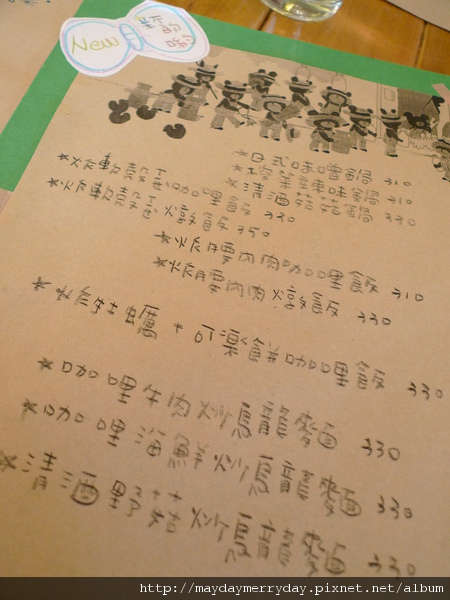 New
新的喲
*日式味噌鍋 310
*招菜辣味鍋 310
*清酒菇菇鍋 330
*炸軟殼蟹咖哩飯 330
*炸軟殼蟹燉飯 350
*炸腰內肉咖哩飯 310
*炸腰內肉燉飯 330
*炸牡蠣+可樂餅咖哩飯 330
*咖哩牛肉炒烏龍麵 330
*咖哩海鮮炒烏龍麵 330
*清酒野菇炒烏龍麵 330
http://maydaymerryday.pixnet.net/album